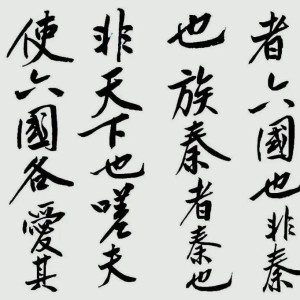 者六國也非秦
也族秦者秦也
非天下也嗟夫
使六國各愛其